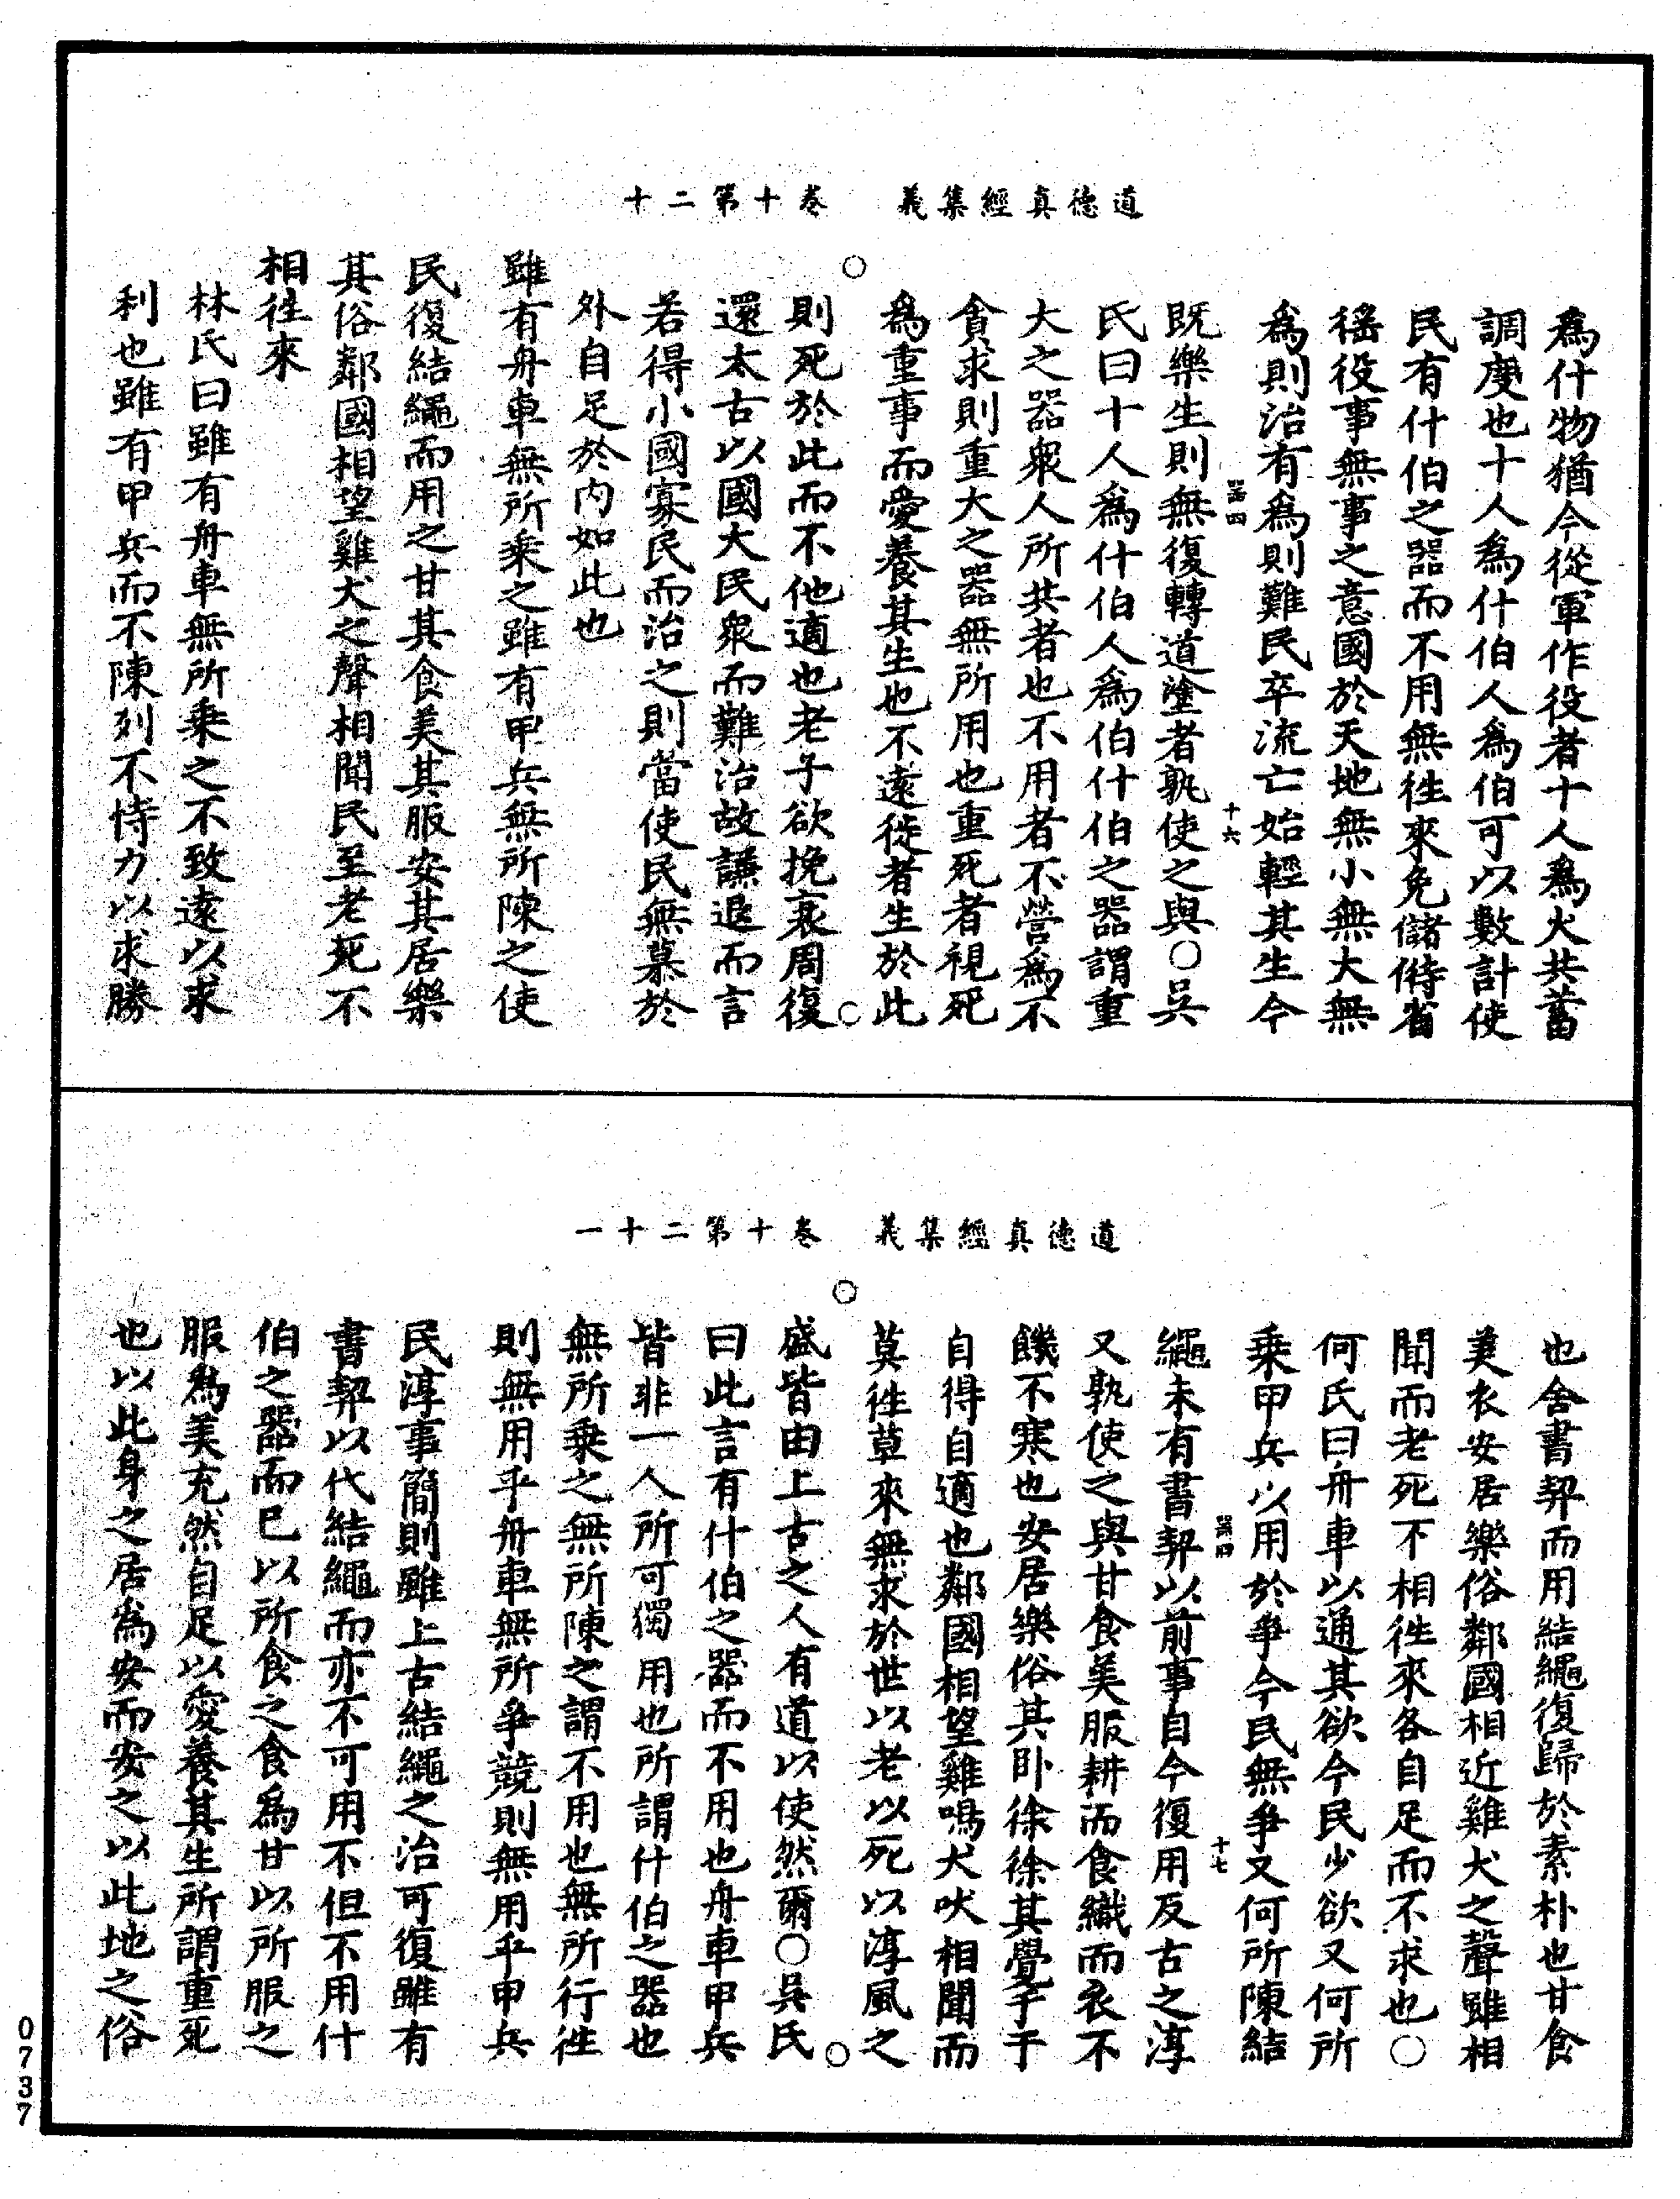 道德真經集義　卷十第二十
爲什物猶今從軍作役者十人爲火共蓄
調度也十人爲什伯人爲伯可以數計使
民有什伯之器而不用無徃來免儲偫省
徭役事無事之意國於天地無小無大無
爲則治有爲則難民卒流亡始輕其生今
罢四　十六
既樂生則無復轉道塗者孰使之與○吳
氏曰十人爲什伯人爲伯什伯之器謂重
大之器衆人所共者也不用者不營爲不
貪求則重大之器無所用也重死者視死
爲重事而愛養其生也不遠徙者生於此
則死於此而不他適也老子欲挽衰周復
還太古以國大民衆而難治故謙退而言
若得小國寡民而治之則當使民無慕於
外自足於內如此也
雖有舟車無所乘之雖有甲兵無所陳之使
民復結繩而用之甘其食美其服安其居樂
其俗鄰國相望雞犬之聲相聞民至老死不
相徃來
林氏曰雖有舟車無所乘之不致遠以求
利也雖有甲兵而不陳列不恃力以求勝
道德真經集義　卷十第二十一
也舍書契而用結繩復歸於素朴也甘食
美衣安居樂俗鄰國相近雞犬之聲雖相
聞而老死不相徃來各自足而不求也○
何氏曰舟車以通其欲今民少欲又何所
乘甲兵以用於爭今民無爭又何所陳結
罢四　十七
繩未有書契以前事自今復用反古之淳
又孰使之與甘食美服耕而食織而衣不
饑不寒也安居樂俗其卧徐徐其覺于于
自得自適也鄰國相望雞鳴犬吠相聞而
莫徃莫來無求於世以老以死以淳風之
盛皆由上古之人有道以使然爾○吳氏
曰此言有什伯之器而不用也舟車甲兵
皆非一人所可獨用也所謂什伯之器也
無所乘之無所陳之謂不用也無所行徃
則無用乎舟車無所爭競則無用乎甲兵
民淳事簡則雖上古結繩之治可復雖有
書契以代結繩而亦不可用不但不用什
伯之器而已以所食之食爲甘以所服之
服爲美充然自足以愛養其生所謂重死
也以此身之居爲安而安之以此地之俗
0737